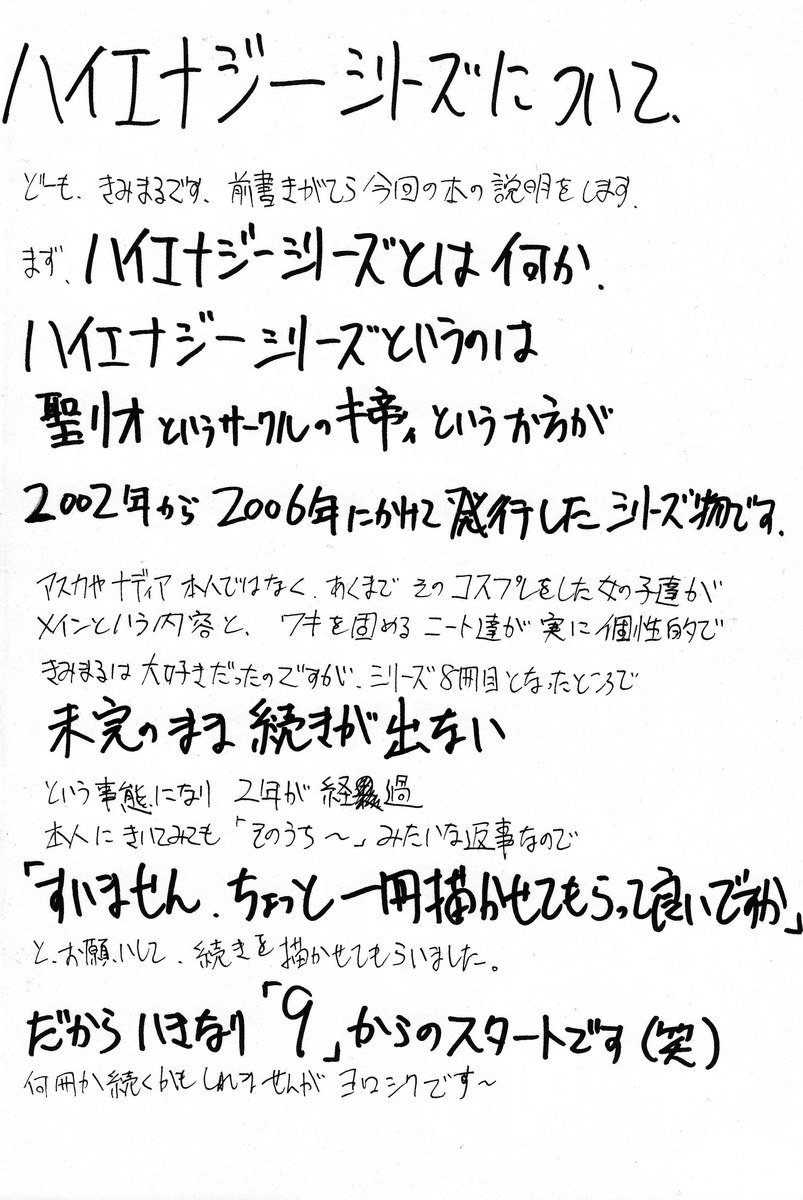 ハイエナジーシリーズについて、
どーも、きみまるです、前書きがてら今回の本の説明をします、
まず、ハイエナジーシリーズとは何か、
ハイエナジーシリーズというのは
聖リオというサークルのキ帝ィという方が
2002年から2006年にかけて発行したシリーズ物です、
アスカやナディア本人ではなく、あくまでそのコスプレをした女の子達が
メインという内容と、ワキを固めるニート達が実に個性的で
きみまるは大好きだったのですが、シリーズ8冊目となったところで
未完のまま続きが出ない
という事態になり 2年が経過
本人にきいてみても「そのうち〜」みたいな返事なので
「すいません、ちょっと一冊描かせてもらって良いですか」
と、お願いして、続きを描かせてもらいました。
だからいきなり「9」からのスタートです(笑)
何冊か続くかもしれませんがヨロシクです〜